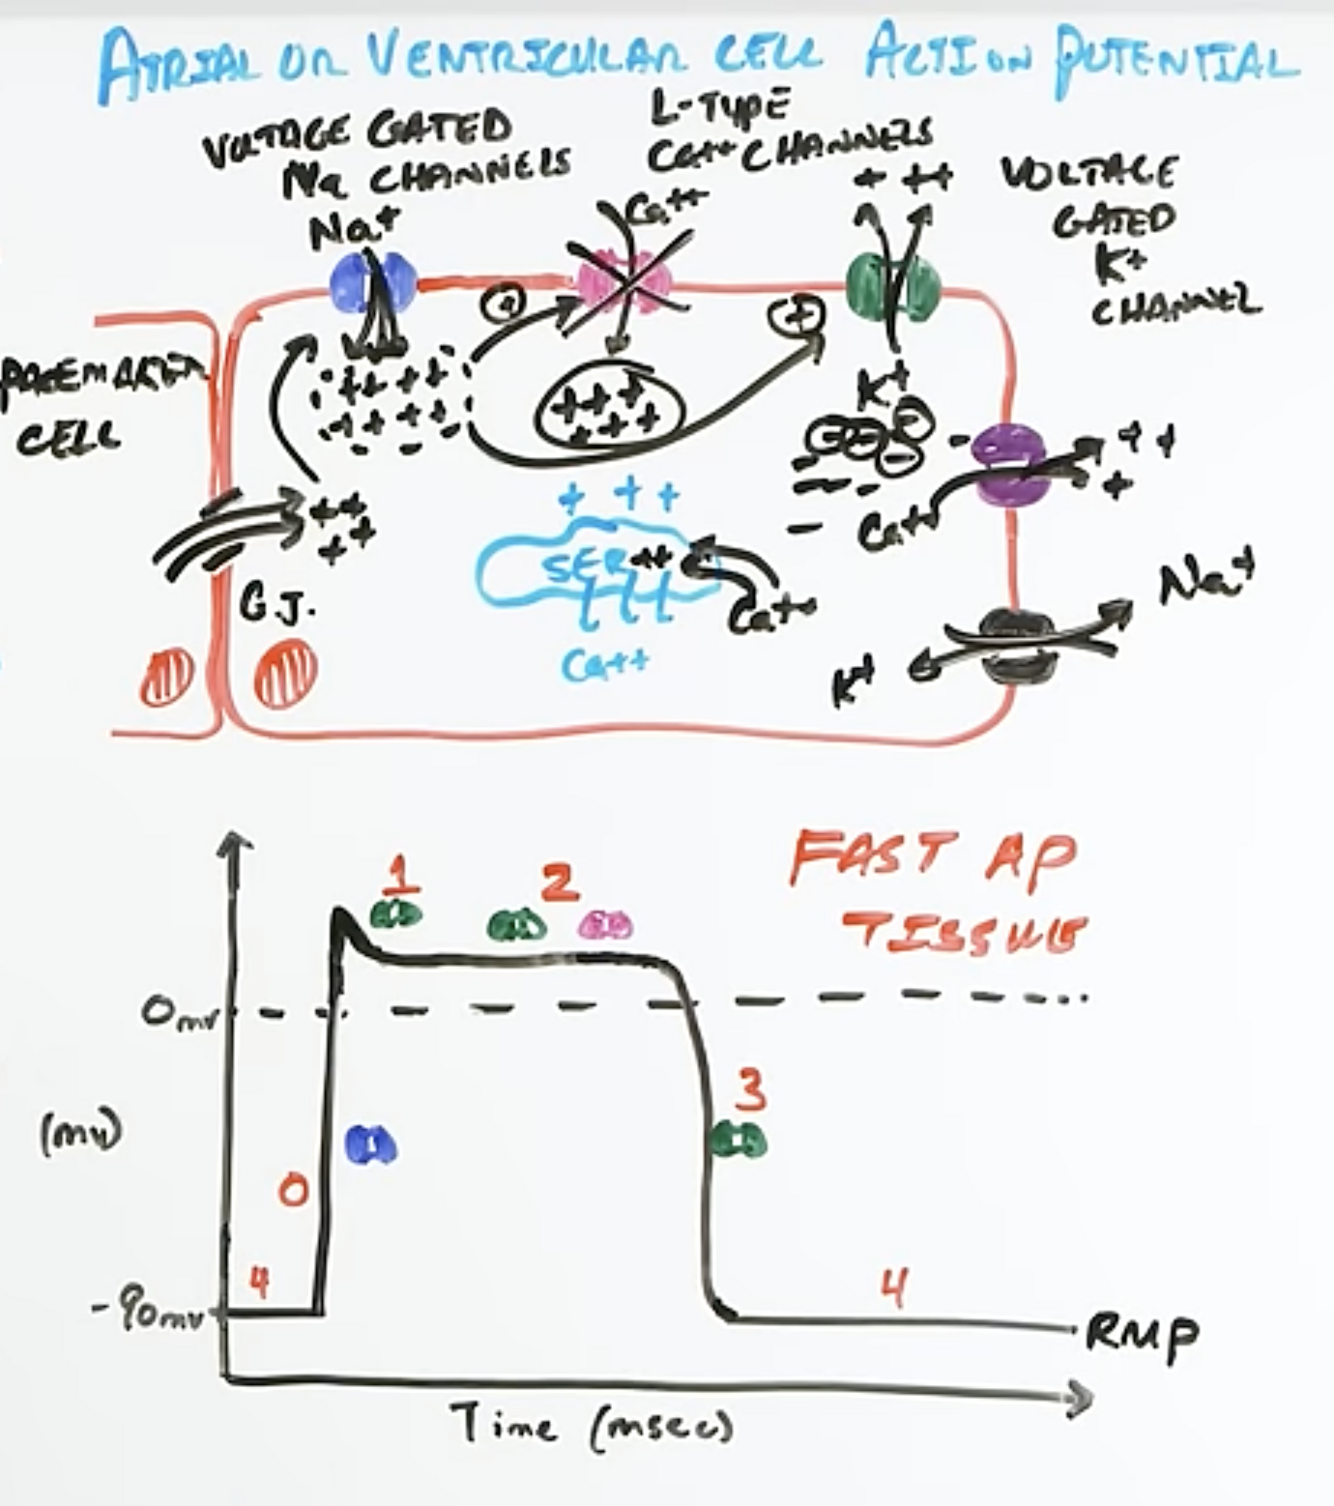 ATRIAL OR VENTRICULAR CELL ACTION POTENTIAL
VOLTAGE GATED
Na CHANNELS
Na+
L-TYPE
Ca++ CHANNELS
Ca++
+ ++
VOLTAGE
GATED
K+
CHANNEL
+
+
PACEMAKER
CELL
++ ++
++ ++
+++
+++
K+
- 
++
+
Ca++
++
++
G.J.
+ ++
SER ++
Ca++
Ca++
Na+
K+
FAST AP
TISSUE
1
2
0mv
3
(mv)
0
4
4
-90mv
RMP
Time (msec)